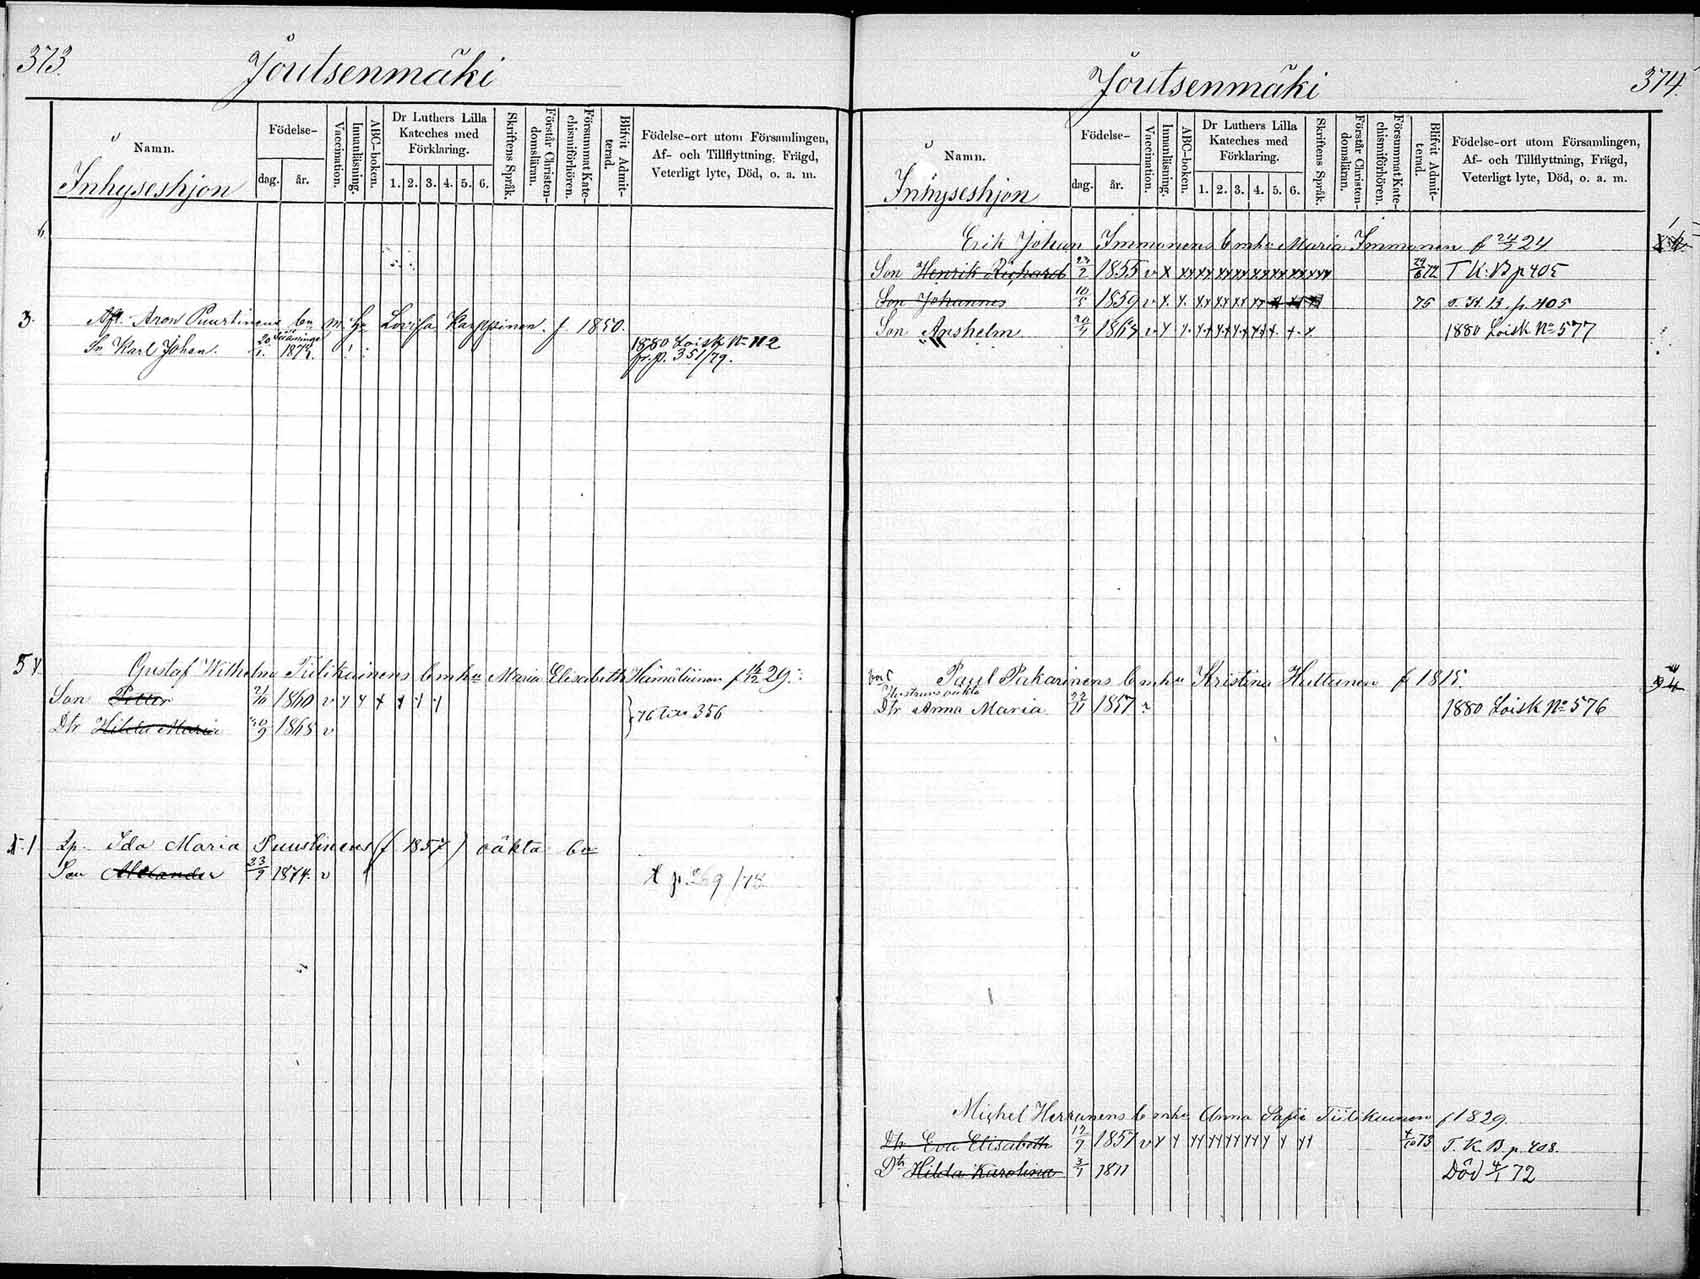 373.
Joutsenmäki
Namn.
Inhyseshjon
Födelse-
dag. år.
Vaccination.
Innanläsning.
ABC-boken.
Dr Luthers Lilla
Kateches med
Förklaring.
1. 2. 3. 4. 5. 6.
Skriftens Språk.
Förstår Christen-
domsläran.
Försummat Kate-
chismiförhören.
Blifvit Admit-
terad.
Födelse-ort utom Församlingen,
Af- och Tillflyttning, Frägd,
Veterligt lyte, Död, o. a. m.
6
3. Aft. Aron Puustinens bn m. Hu Lovisa Karppinen f 1850.
Sn Karl Johan. 1874. 1880 Loisk No 112
fr. p. 351/79.
5 Gustaf Wilhelm Tiilikainens b m hu Maria Elisabeth Heimäläinen f 29.
Son Petter 21/10 1860 v
76 356
Dtr Hilda Maria 20/9 1865 v
1 Lp. Ida Maria Puustinens (f 1857) oäkta bn
Son Alexander 23/9 1874. v p 269/78
Joutsenmäki
374.
Namn.
Inhyseshjon
Födelse-
dag. år.
Vaccination.
Innanläsning.
ABC-boken.
Dr Luthers Lilla
Kateches med
Förklaring.
1. 2. 3. 4. 5. 6.
Skriftens Språk.
Förstår Christen-
domsläran.
Försummat Kate-
chismiförhören.
Blifvit Admit-
terad.
Födelse-ort utom Församlingen,
Af- och Tillflyttning, Frägd,
Veterligt lyte, Död, o. a. m.
Erik Johan Immonens b m hu Maria Immonen f 24
Son Henrik Richard 23/2 1855 v 72 T. K. B p 405
Son Johannes 10/5 1859 v 75 p. 405
Son Anshelm 1864 v 1880 Loisk No 577
Paul Pakarinens b m hu Kristina Huttunen f 1815.
Dtr Anna Maria 22/11 1857 1880 Loisk No 576
Michel Herranens b m hu Anna Sofie Tiilikainen f 1829.
Dtr Eva Elisabeth 17/7 1857 v 73 T. K. B. p. 408.
Dtr Hilda Karolina 3/1 1871 Död 4/1 72